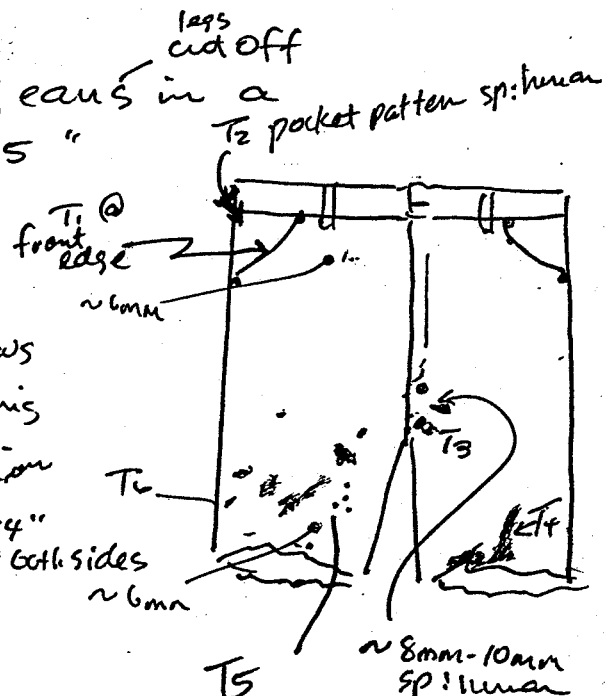 legs
cut off
eans in a
5 "
T2 pocket patten sp: human
T1 @
front
edge
~6mm
T3
T6
T4
4"
both sides
~6mm
T5
~8mm-10mm
sp: human